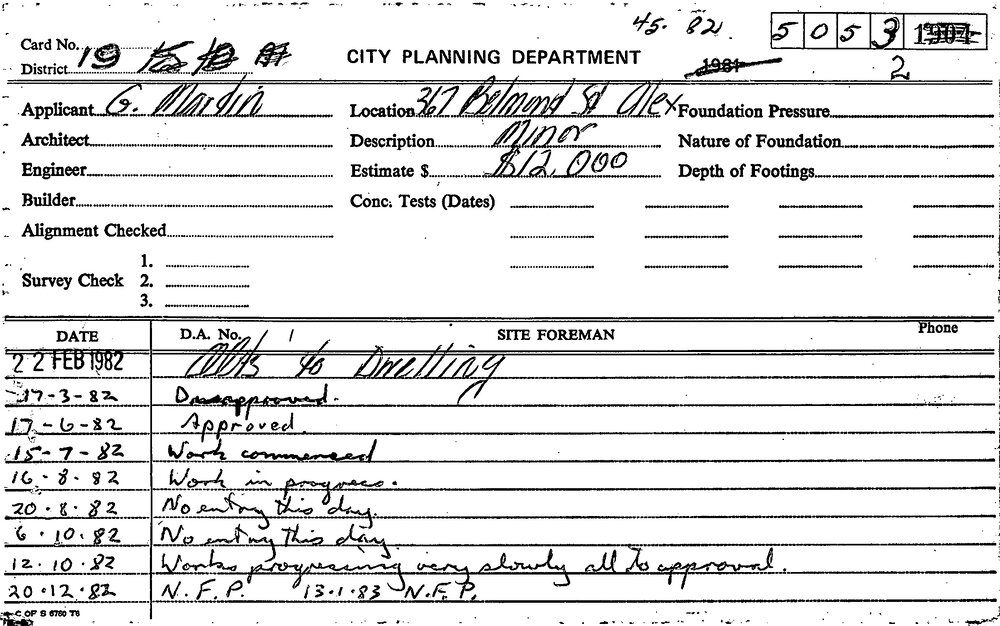 45. 82. 5 0 5 3
Card No.
District 19
CITY PLANNING DEPARTMENT
1981 2
Applicant G. Martin Location 367 Belmond St Alex Foundation Pressure
Architect Description Minor Nature of Foundation
Engineer Estimate $ $12,000 Depth of Footings
Builder Conc. Tests (Dates)
Alignment Checked
1.
Survey Check 2.
3.
DATE D.A. No. SITE FOREMAN Phone
22 FEB 1982 to Dwelling
17-3-82 Disapproved.
17-6-82 Approved.
15-7-82 Work commenced
16.8.82 Work in progress.
20.8.82 No entry this day.
6.10.82 No entry this day.
12.10.82 Works progressing very slowly all to approval.
20.12.82 N.F.P. 13.1.83 N.F.P.
C OF S 6760 T6